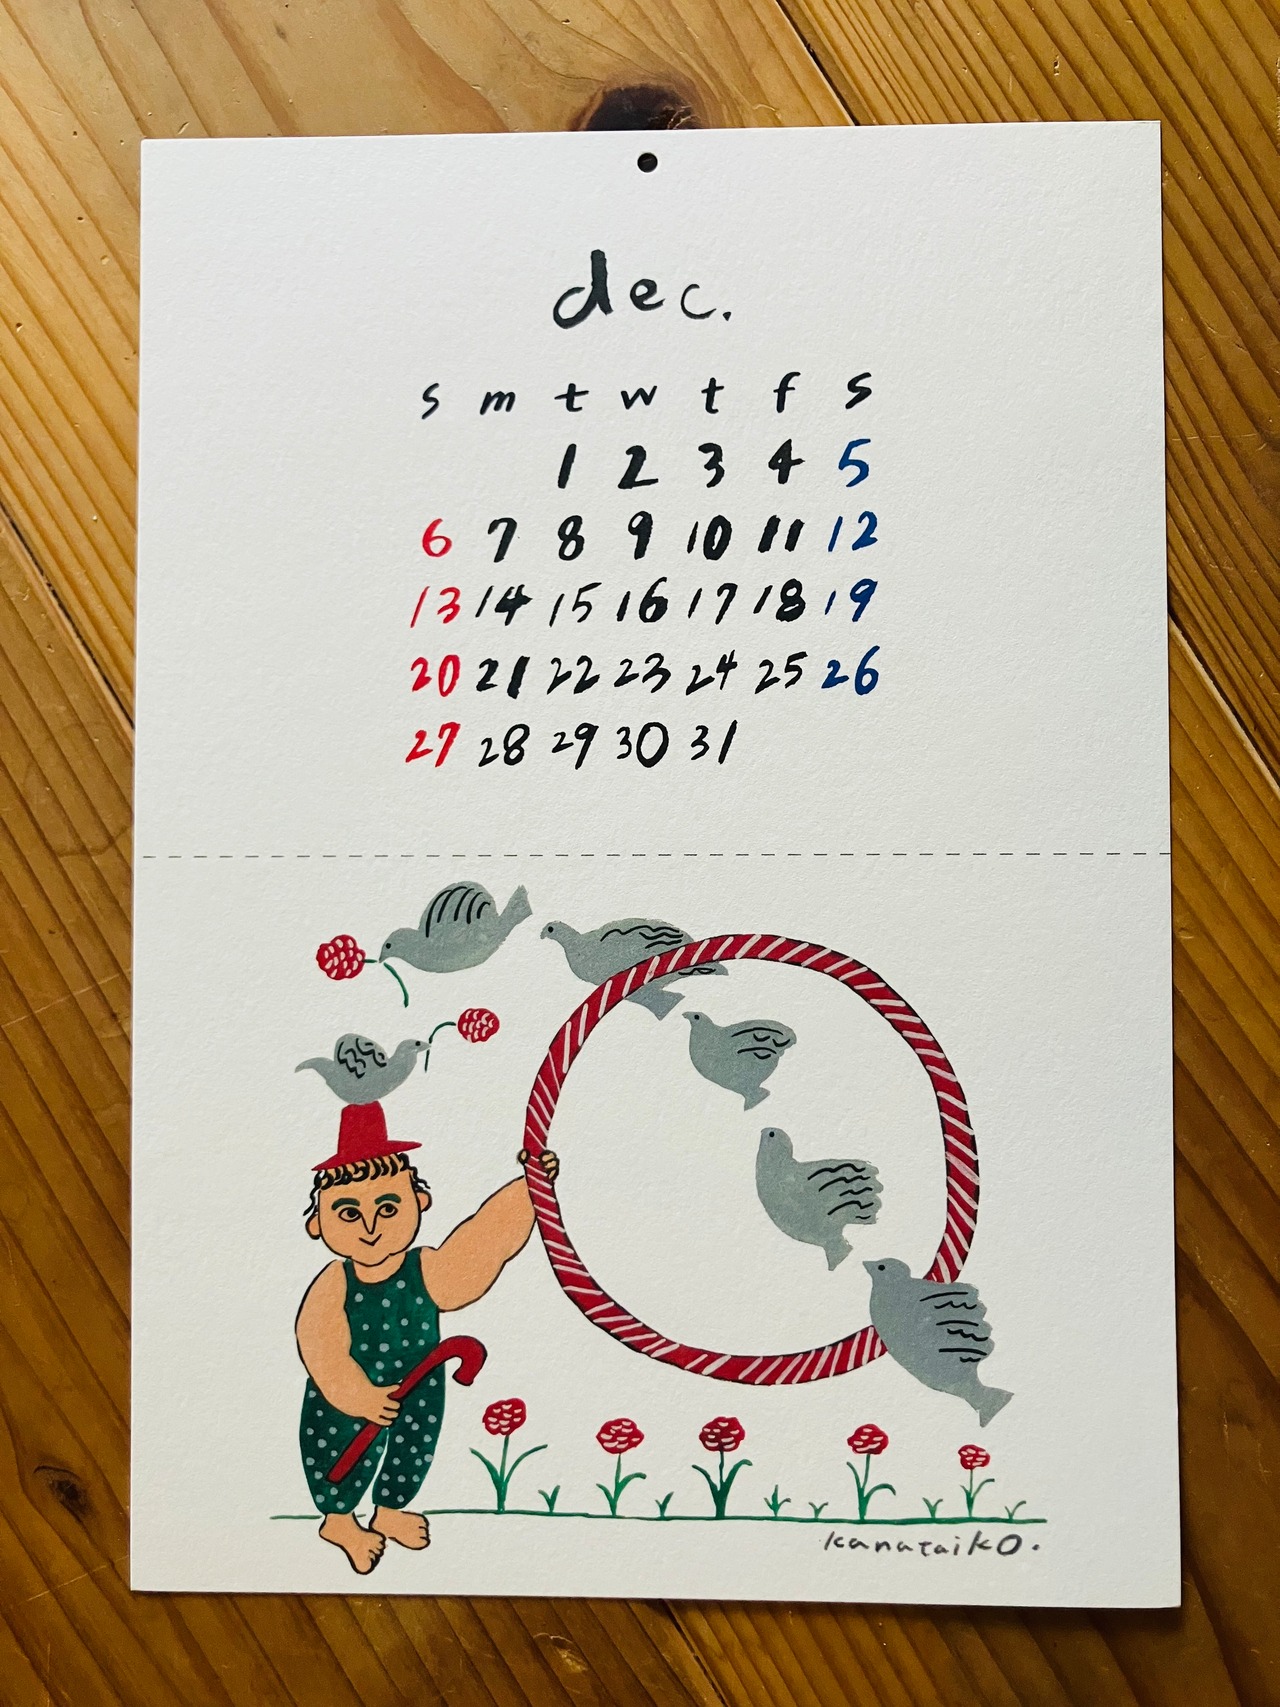 dec.
s m t w t f s
1 2 3 4 5
6 7 8 9 10 11 12
13 14 15 16 17 18 19
20 21 22 23 24 25 26
27 28 29 30 31
kanataiko.